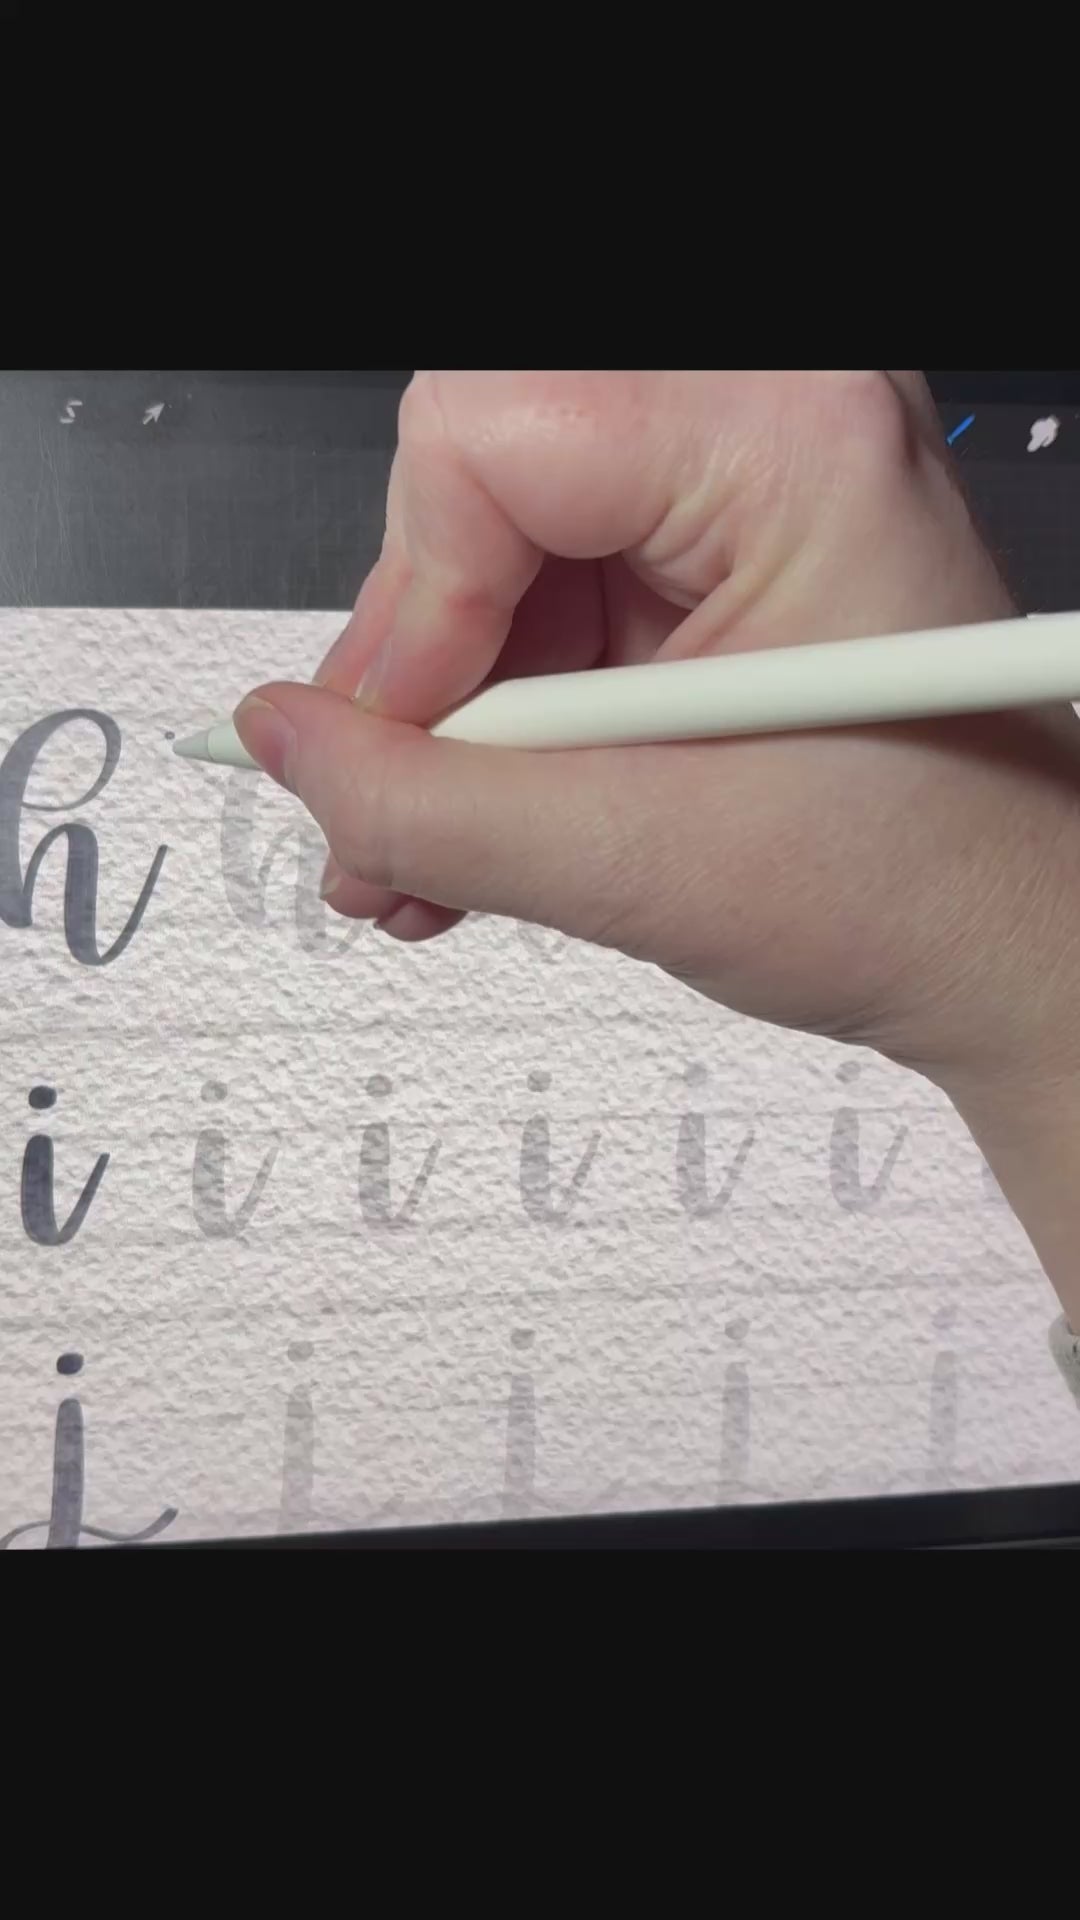 h h
i i i i i i
j j j j j